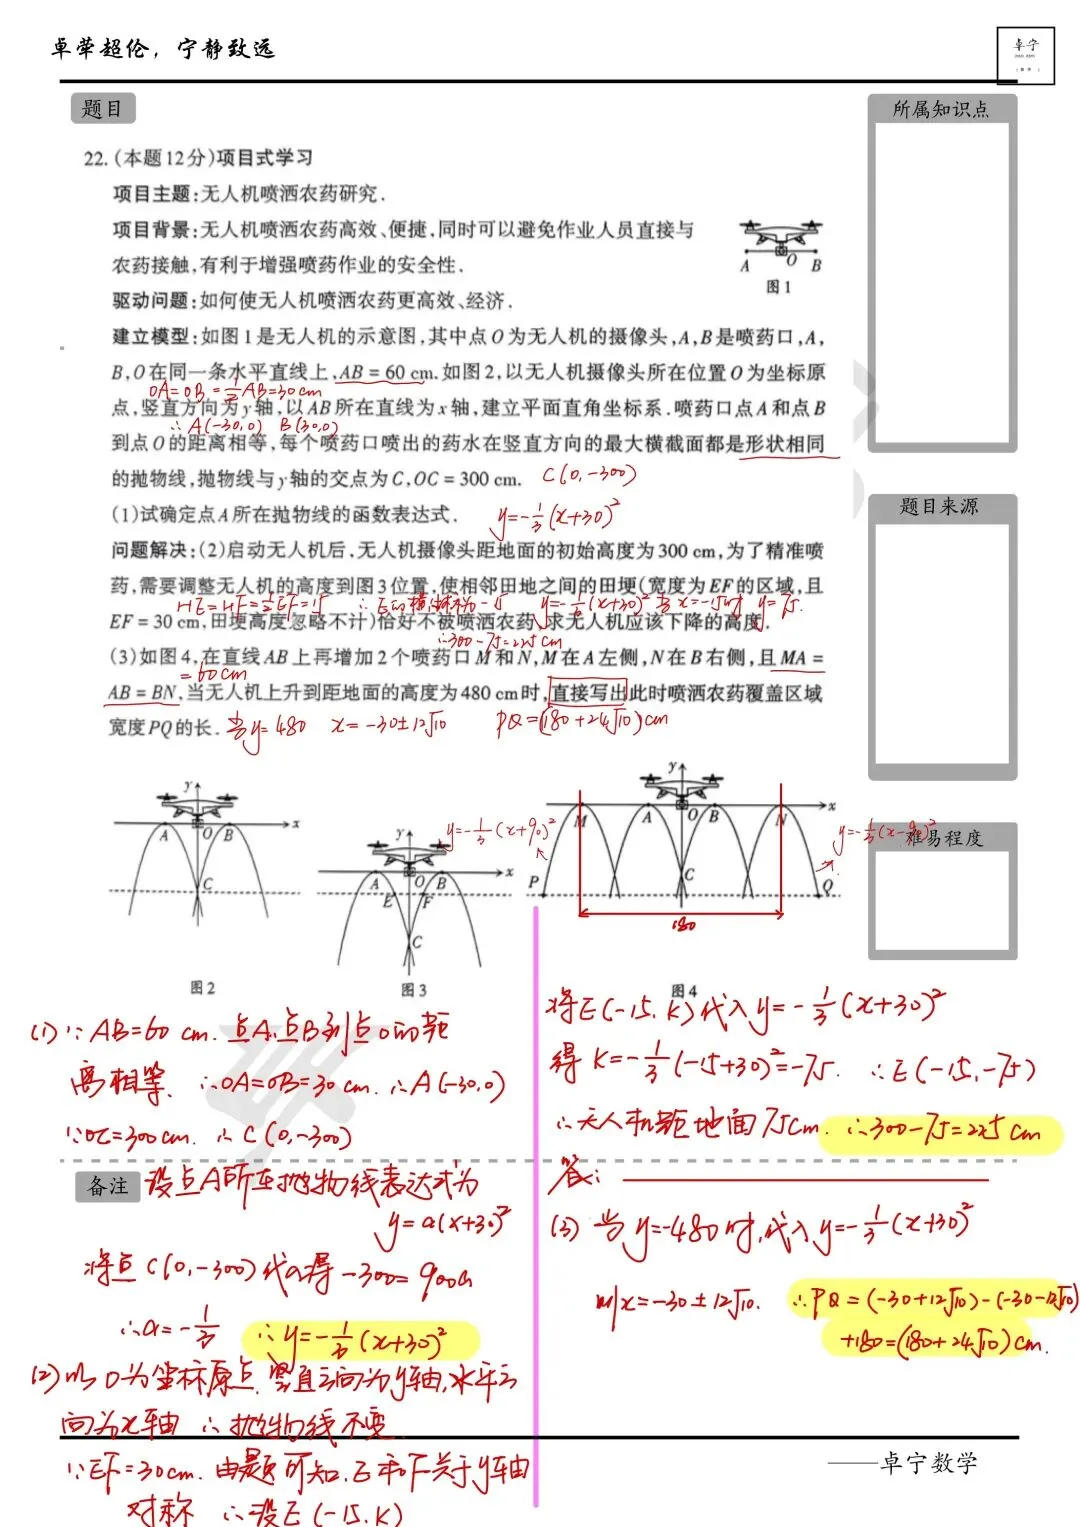 卓荦超伦，宁静致远
卓宁
题目
所属知识点
22.(本题12分)项目式学习
项目主题:无人机喷洒农药研究.
项目背景:无人机喷洒农药高效、便捷,同时可以避免作业人员直接与
农药接触,有利于增强喷药作业的安全性.
A O B
图1
驱动问题:如何使无人机喷洒农药更高效、经济.
建立模型:如图1是无人机的示意图,其中点O为无人机的摄像头,A,B是喷药口,A,
B,O在同一条水平直线上,AB=60 cm.如图2,以无人机摄像头所在位置O为坐标原
OA=OB=½AB=30cm
点,竖直方向为y轴,以AB所在直线为x轴,建立平面直角坐标系.喷药口点A和点B
∴A(-30,0) B(30,0)
到点O的距离相等,每个喷药口喷出的药水在竖直方向的最大横截面都是形状相同
的抛物线,抛物线与y轴的交点为C,OC=300 cm. C(0,-300)
(1)试确定点A所在抛物线的函数表达式. y=-⅓(x+30)²
题目来源
问题解决:(2)启动无人机后,无人机摄像头距地面的初始高度为300 cm,为了精准喷
药,需要调整无人机的高度到图3位置,使相邻田地之间的田埂(宽度为EF的区域,且
HE=HF=½EF=15 ∴E的横坐标为-15 y=-⅓(x+30)² 当x=-15时 y=75.
EF=30 cm,田埂高度忽略不计)恰好不被喷洒农药,求无人机应该下降的高度.
∴300-75=225cm
(3)如图4,在直线AB上再增加2个喷药口M和N,M在A左侧,N在B右侧,且MA=
=60cm
AB=BN,当无人机上升到距地面的高度为480 cm时,直接写出此时喷洒农药覆盖区域
宽度PQ的长. 当y=480 x=-30±12√10 PQ=(180+24√10)cm
难易程度
y A O B x C
图2
y A O B x E F C
图3
y=-⅓(x+90)²
y M A O B N x C P Q
y=-⅓(x-90)²
180
图4
(1)∵AB=60 cm.点A、点B到点O的距
离相等. ∴OA=OB=30cm. ∴A(-30,0)
∵OC=300cm. ∴C(0,-300)
备注
设点A所在抛物线表达式为
y=a(x+30)²
将点C(0,-300)代入得-300=900a
∴a=-⅓ ∴y=-⅓(x+30)²
(2)以O为坐标原点,竖直方向为y轴,水平方
向为x轴 ∴抛物线不变
∵EF=30cm.由题可知,E和F关于y轴
对称 ∴设E(-15,K)
将E(-15,K)代入y=-⅓(x+30)²
得K=-⅓(-15+30)²=-75. ∴E(-15,-75)
∴无人机距地面75cm. ∴300-75=225cm
答:
(3)当y=-480时,代入y=-⅓(x+30)²
则x=-30±12√10. ∴PQ=(-30+12√10)-(-30-12√10)
+180=(180+24√10)cm.
——卓宁数学